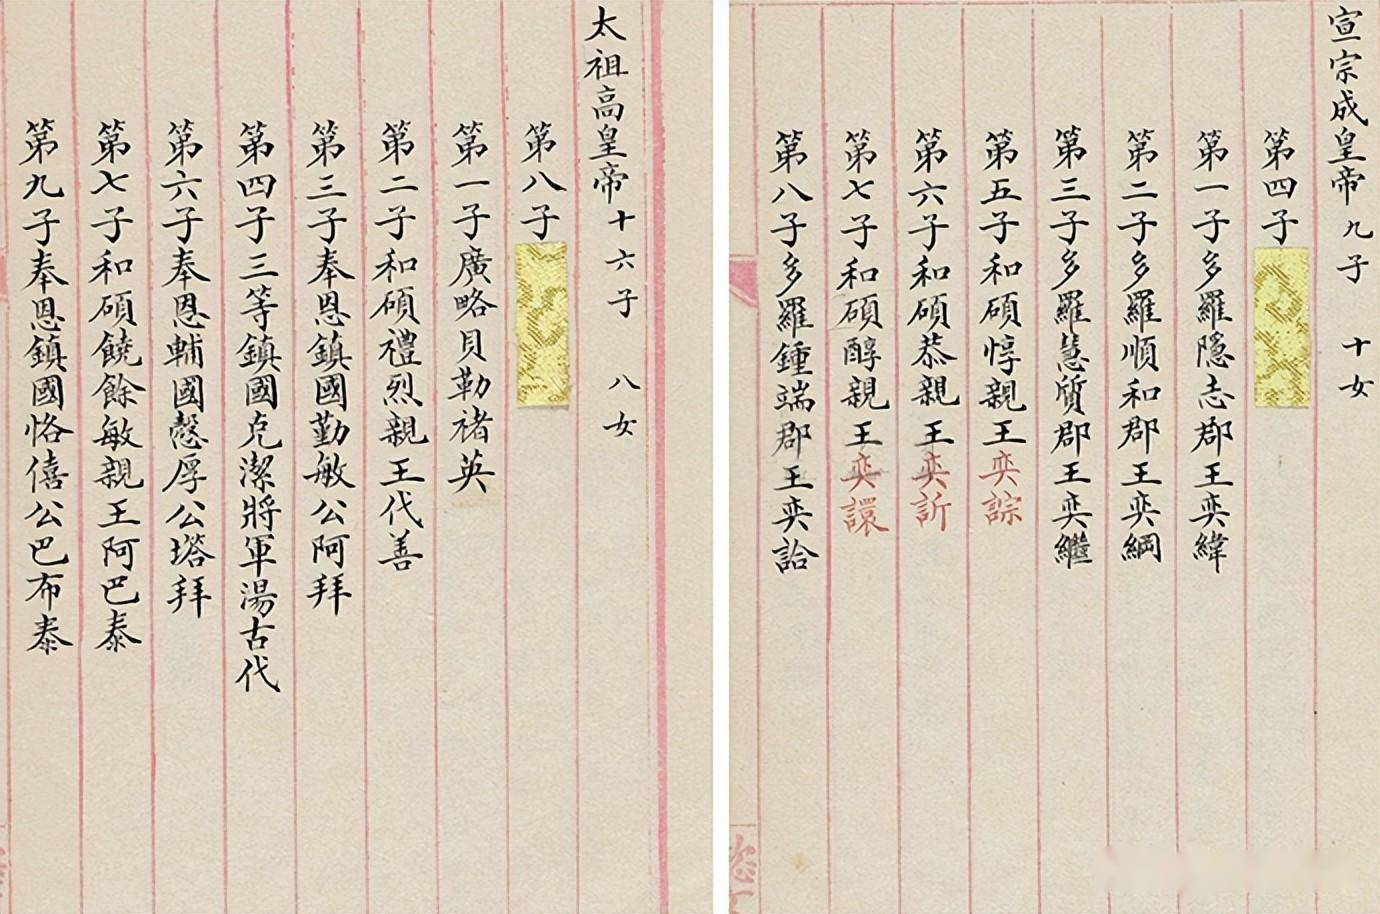 宣宗成皇帝九子 十女
第四子
第一子多羅隱志郡王奕緯
第二子多羅順和郡王奕綱
第三子多羅慧質郡王奕繼
第五子和碩惇親王奕誴
第六子和碩恭親王奕訢
第七子和碩醇親王奕譞
第八子多羅鍾端郡王奕詥
太祖高皇帝十六子 八女
第八子
第一子廣略貝勒褚英
第二子和碩禮烈親王代善
第三子奉恩鎮國勤敏公阿拜
第四子三等鎮國克潔將軍湯古代
第六子奉恩輔國愨厚公塔拜
第七子和碩饒餘敏親王阿巴泰
第九子奉恩鎮國恪僖公巴布泰